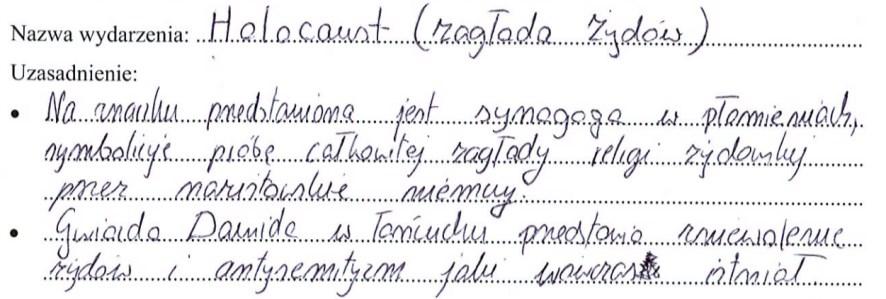 Nazwa wydarzenia: Holocaust (zagłada Żydów)
Uzasadnienie:
• Na znaczku przedstawiona jest synagoga w płomieniach,
symbolizuje próbę całkowitej zagłady religi żydowskiej
przez nazistowskie niemcy.
• Gwiazda Dawida w łańcuchu przedstawia zniewolenie
żydów i antysemityzm jaki wówczas istniał